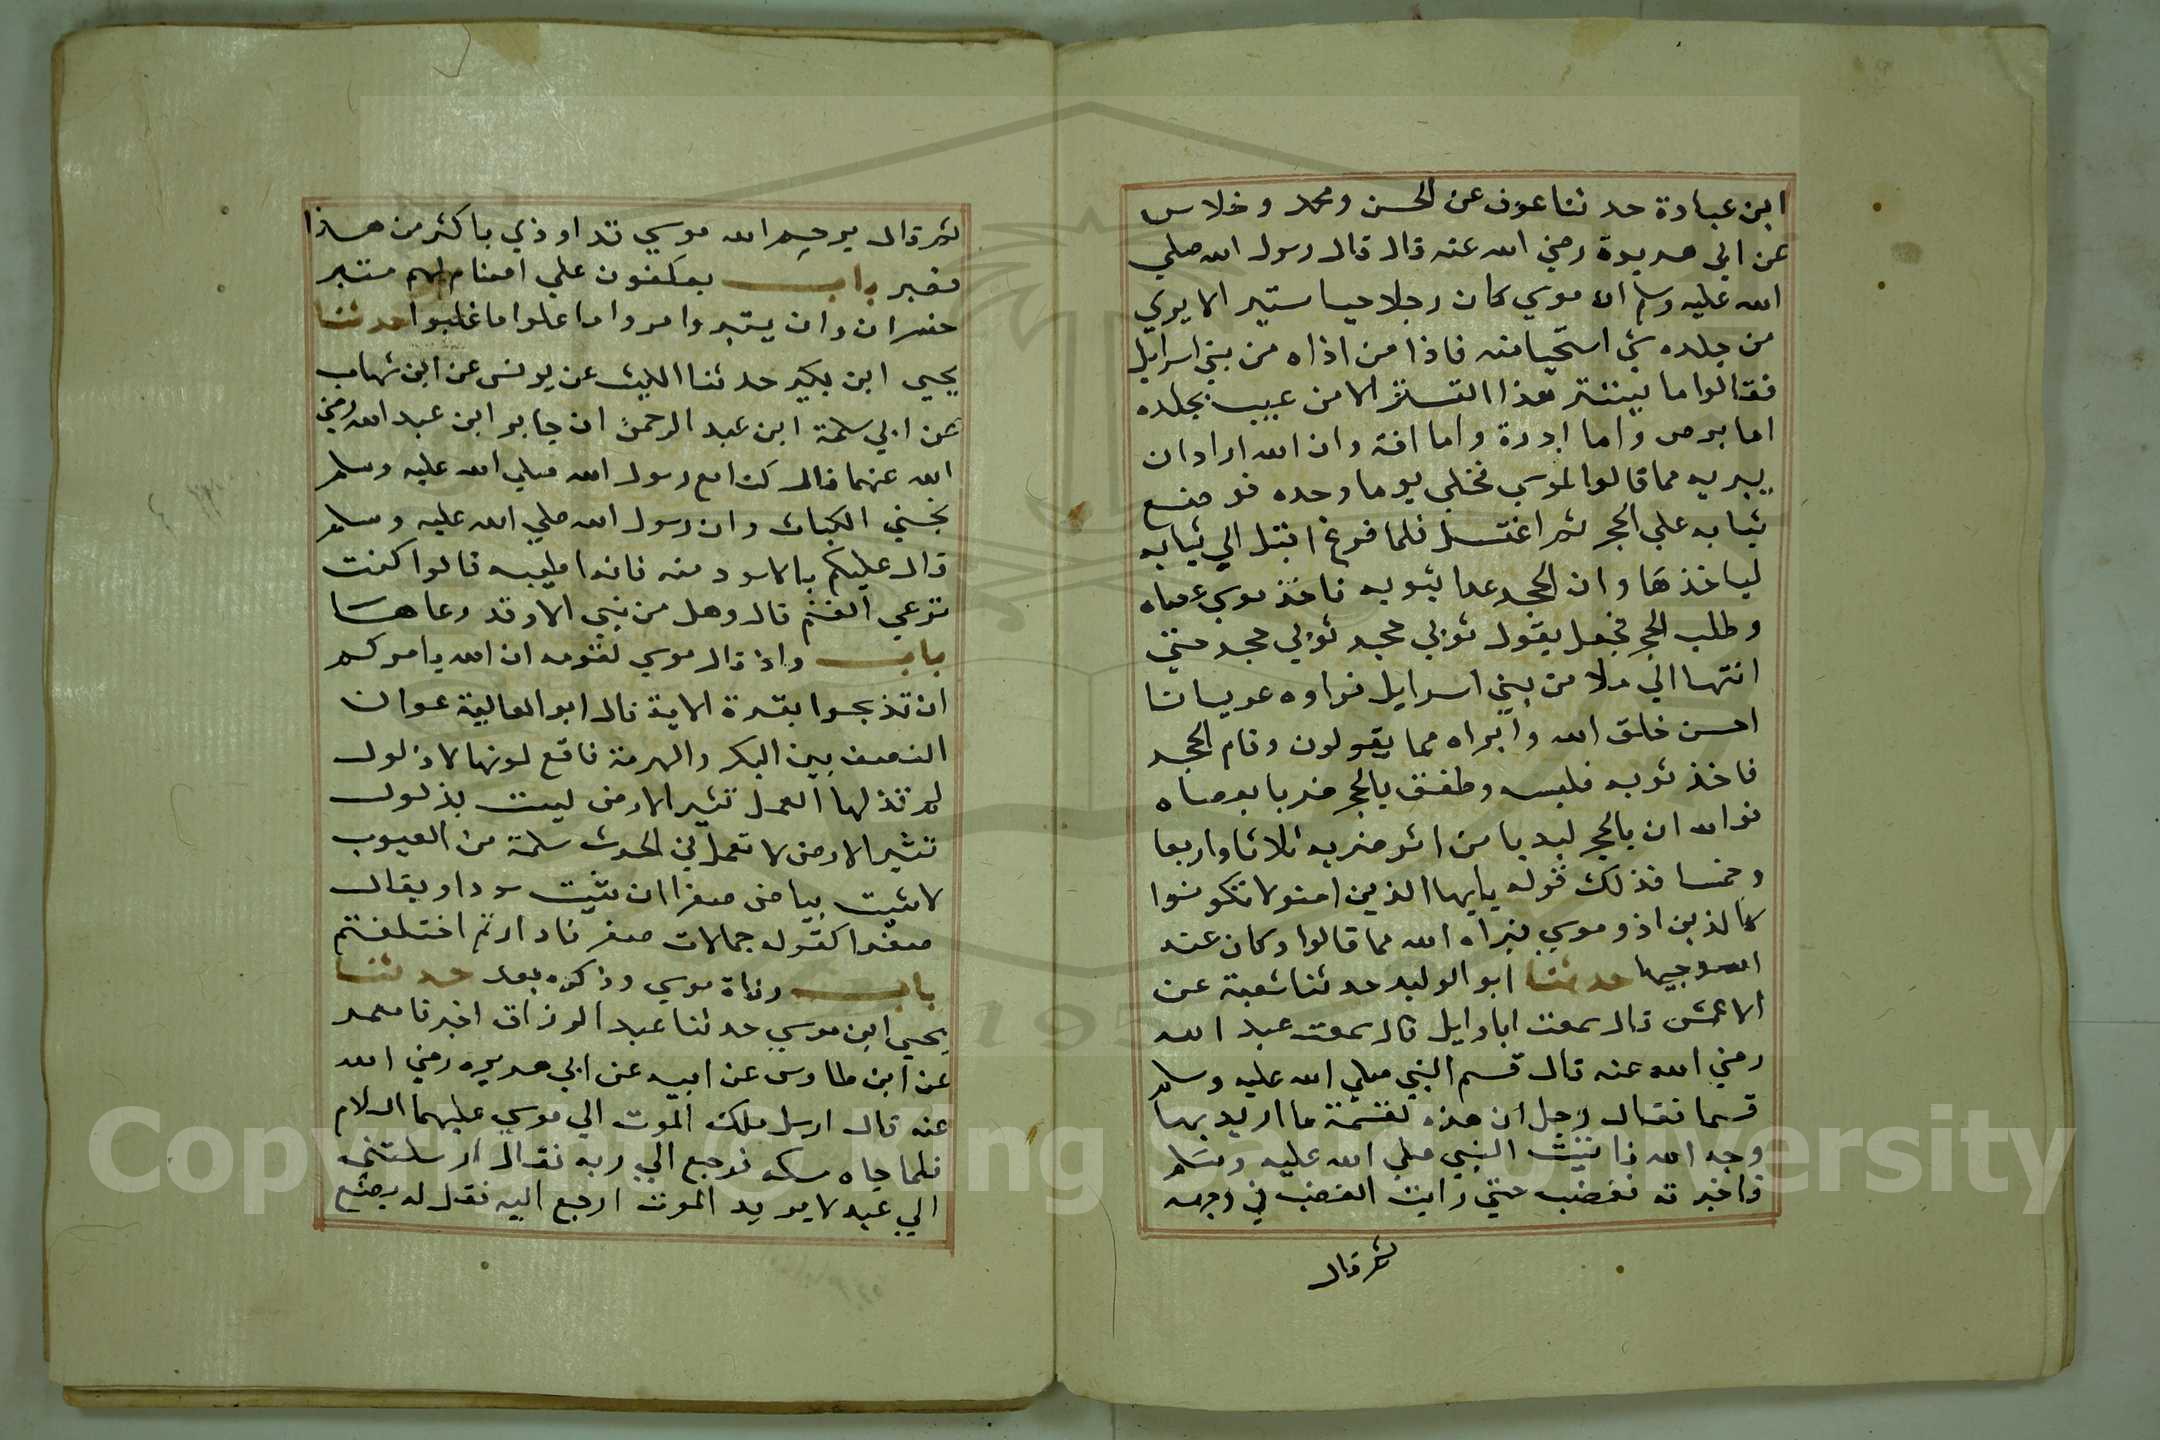 ابن عبادة حدثنا عوف عن الحسن ومحمد وخلاس
عن ابي هريرة رضي الله عنه قال قال رسول الله صلي
الله عليه وسلم ان موسي كان رجلا حييا ستيرا لا يري
من جلده شي استحيا منه فاذا من اذاه من بني اسرايل
فقالوا ما يستتر هذا التستر الا من عيب بجلده
اما برص واما ادرة واما افة وان الله اراد ان
يبريه مما قالوا لموسي فخلي يوما وحده فوضع
ثيابه علي الحجر ثم اغتسل فلما فرغ اقبل الي ثيابه
لياخذها وان الحجر عدا بثوبه فاخذ موسي عصاه
وطلب الحجر فجعل يقول ثوبي حجر ثوبي حجر حتي
انتها الي ملا من بني اسرايل فراوه عريانا
احسن خلق الله وابراه مما يقولون وقام الحجر
فاخذ ثوبه فلبسه وطفق بالحجر ضربا بعصاه
فوالله ان بالحجر لندبا من اثر ضربه ثلاثا واربعا
وخمسا فذلك قوله يايها الذين امنو لا تكونوا
كالذين اذو موسي فبراه الله مما قالوا وكان عند
الله وجيها حدثنا ابو الوليد حدثنا شعبة عن
الاعمش قال سمعت ابا وايل قال سمعت عبد الله
رضي الله عنه قال قسم النبي صلي الله عليه وسلم
قسما فقال رجل ان هذه لقسمة ما اريد بها
وجه الله فاتيت النبي صلي الله عليه وسلم
فاخبرته فغضب حتي رايت الغضب في وجهه
ثم قال
ثم قال يرحم الله موسي قد اوذي باكثر من هذا
فصبر باب يعكفون علي اصنام لهم متبر
خسران وان يتبروا مروا ما علوا ما غلبوا حدثنا
يحيي ابن بكير حدثنا الليث عن يونس عن ابن شهاب
عن ابي سلمة ابن عبد الرحمن ان جابر ابن عبد الله رضي
الله عنهما قال كنا مع رسول الله صلي الله عليه وسلم
نجني الكباث وان رسول الله صلي الله عليه وسلم
قال عليكم بالاسود منه فانه اطيبه قالوا كنت
ترعي الغنم قال وهل من نبي الا وقد رعاها
باب واذ قال موسي لقومه ان الله يامركم
ان تذبحوا بقرة الاية قال ابو العالية عوان
النصف بين البكر والهرمة فاقع لونها لا ذلول
لم تذلها العمل تثير الارض ليست بذلول
تثير الارض لا تعمل في الحرث سلمة من العيوب
لا شيت بياض صفرا ان شيت سودا ويقال
صفرا كقوله جمالات صفر فاداراتم اختلفتم
باب وفاة موسي وذكره بعد حدثنا
يحيي ابن موسي حدثنا عبد الرزاق اخبرنا معمر
عن ابن طاوس عن ابيه عن ابي هريره رضي الله
عنه قال ارسل ملك الموت الي موسي عليهما السلام
فلما جاه سكه فرجع الي ربه فقال ارسلتني
الي عبد لا يريد الموت ارجع اليه فقل له يضع
Copyright © King Saud University
195